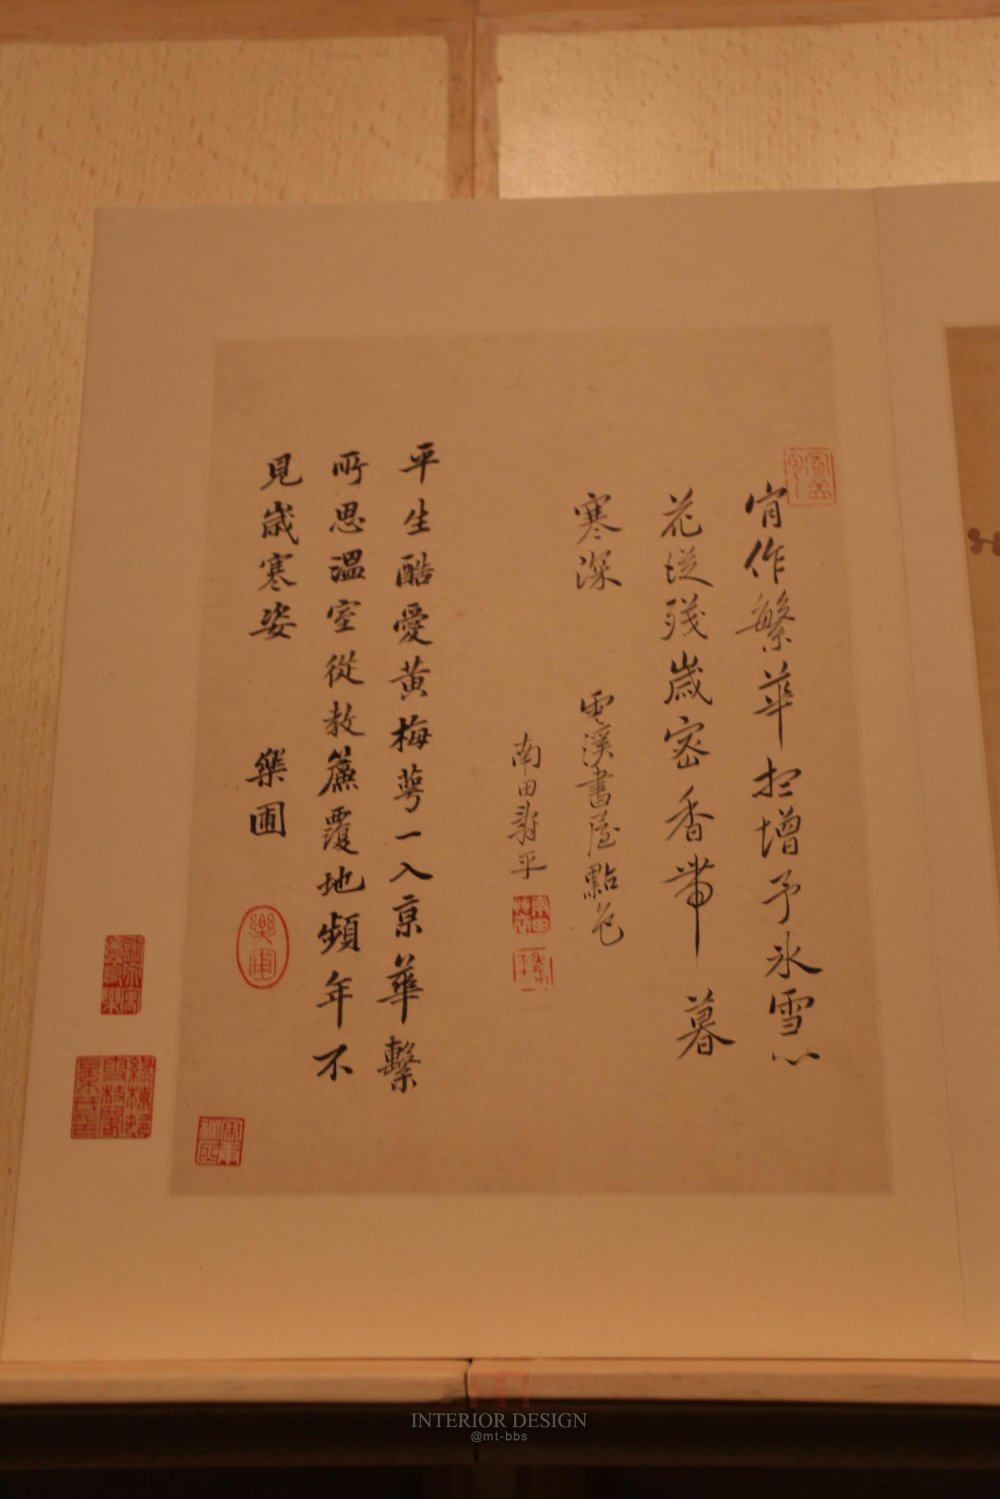 宵作繁華扫增予氷雪心
花從殘嵗密香帶暮
寒深 雲溪書屋點色
南田壽平
平生酷愛黄梅萼一入京華繫
所思溫室從教簾覆地頻年不
見嵗寒姿 樂圃
樂圃
INTERIOR DESIGN
@mt-bbs